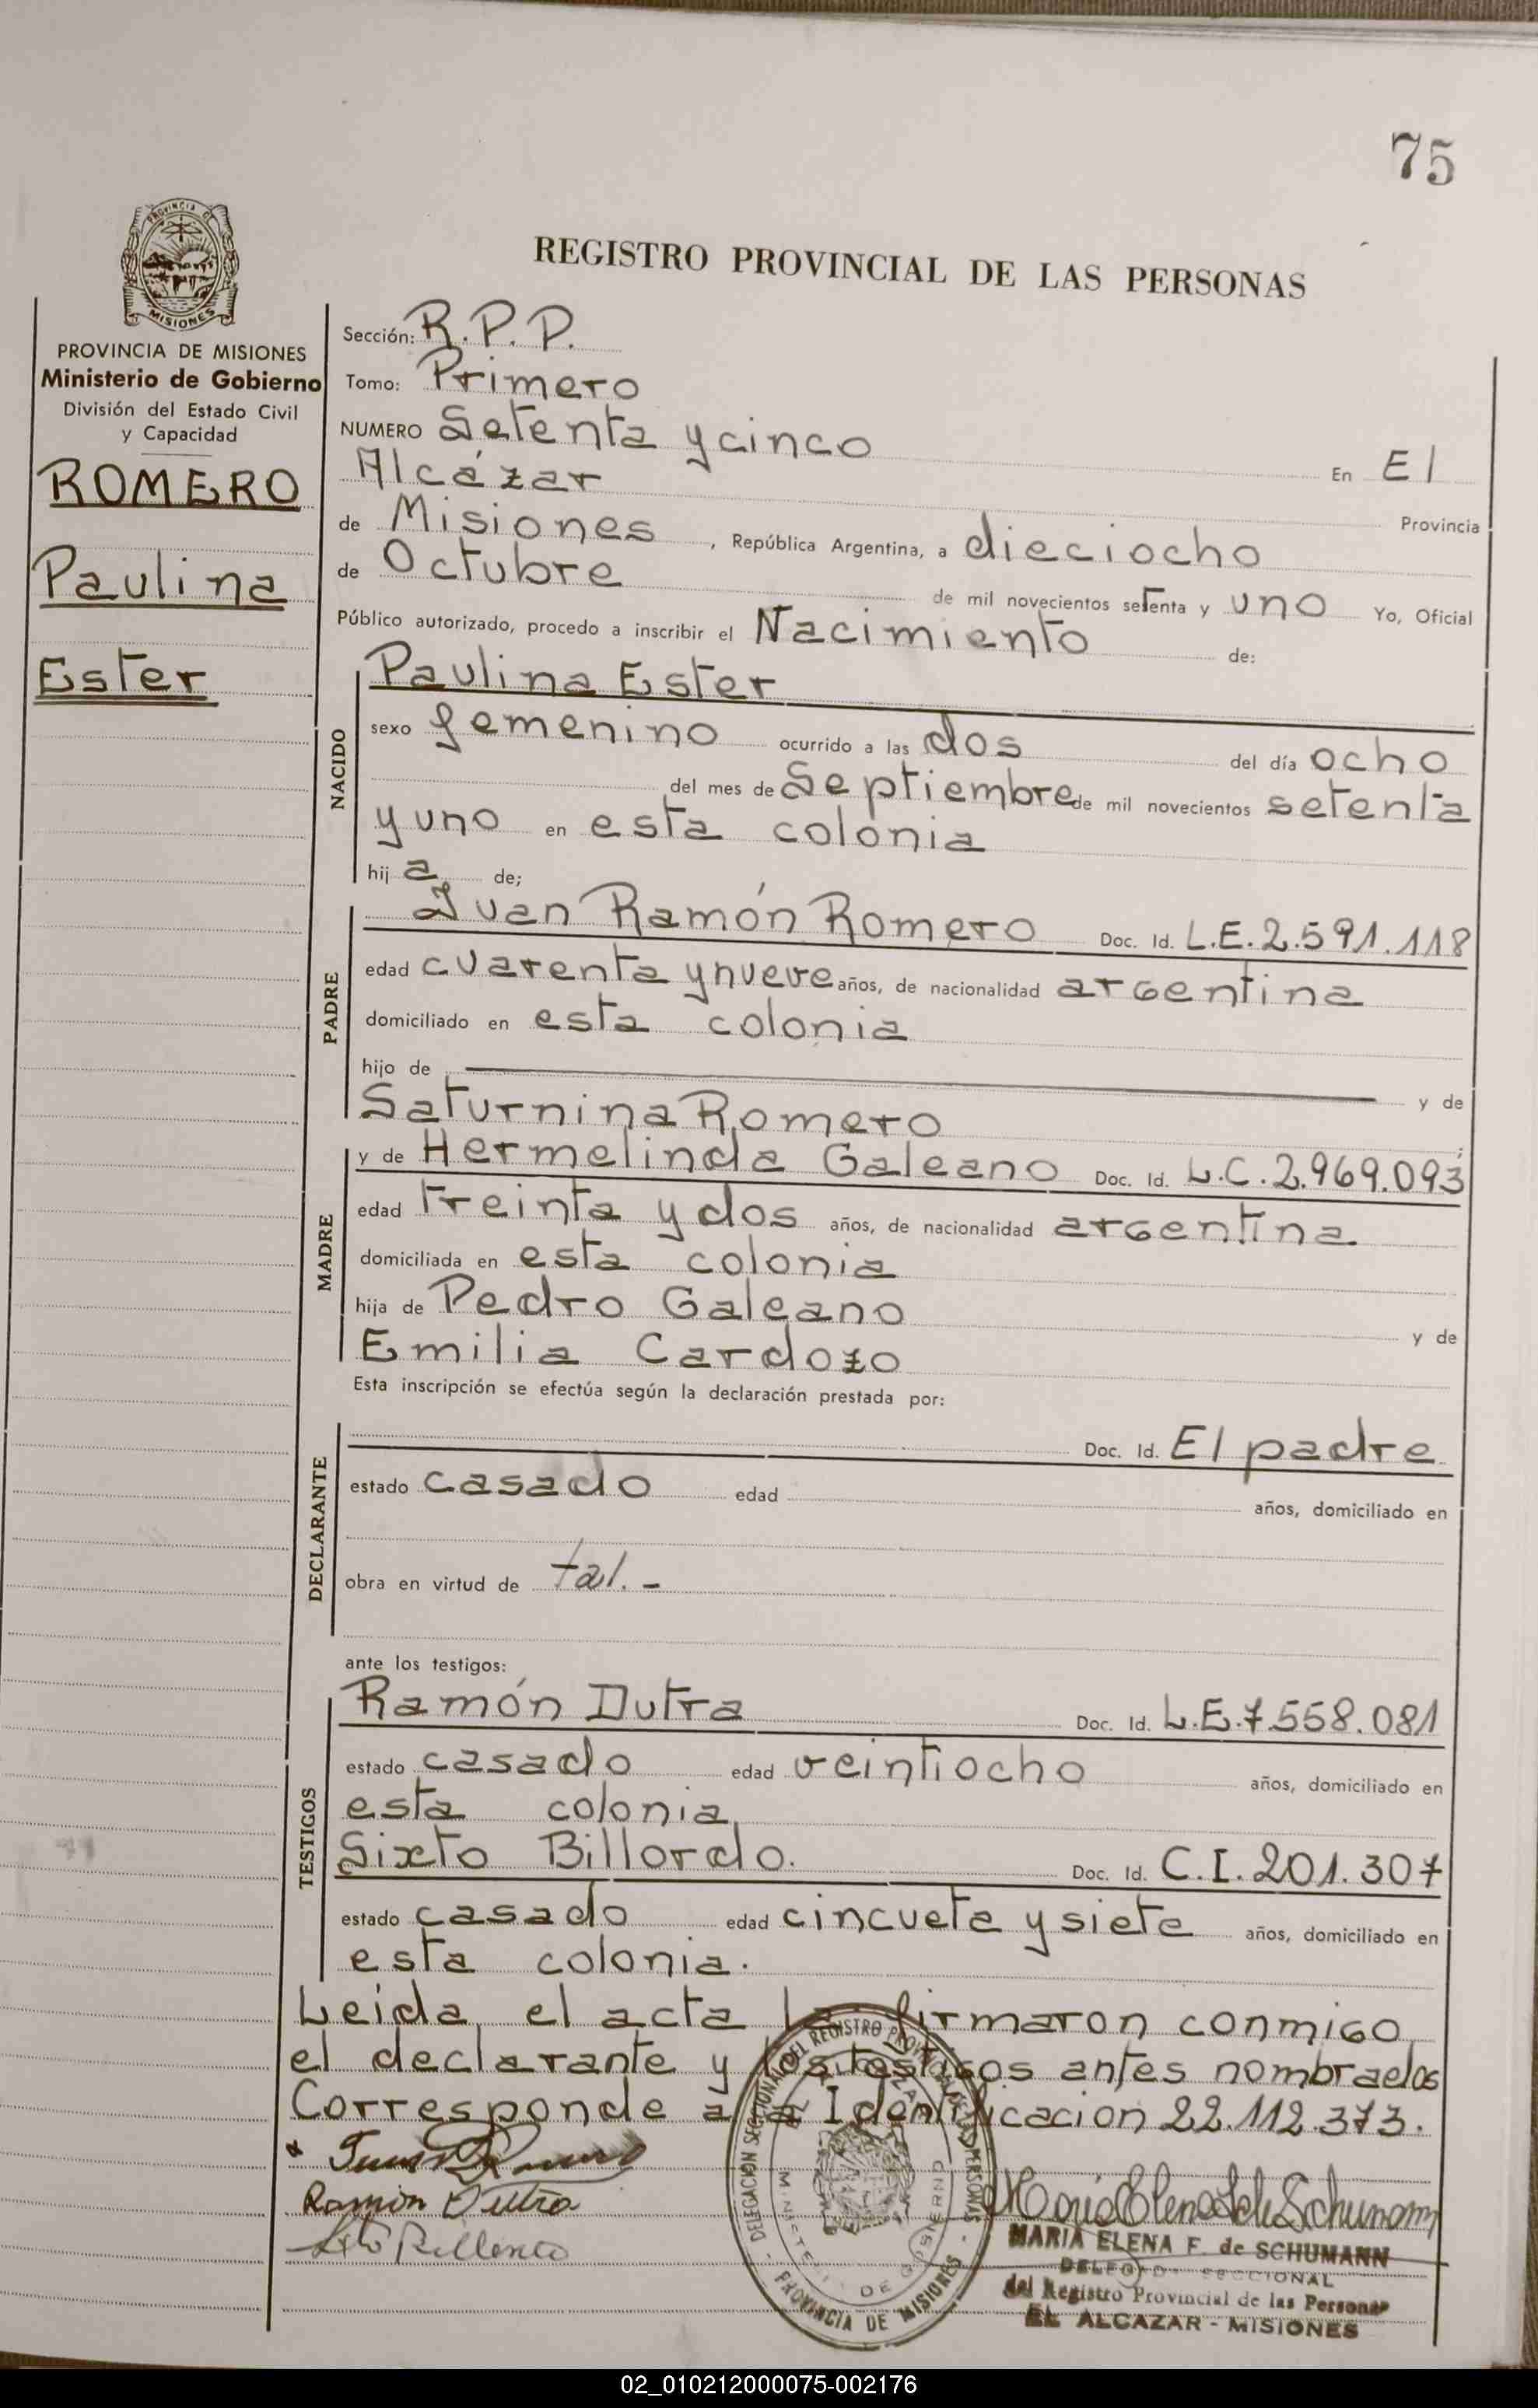 75
PROVINCIA DE
MISIONES
REGISTRO PROVINCIAL DE LAS PERSONAS
PROVINCIA DE MISIONES
Ministerio de Gobierno
División del Estado Civil
y Capacidad
ROMERO
Paulina
Ester
Sección: R.P.P.
Tomo: Primero
NUMERO Setenta y cinco En El
Alcázar Provincia
de Misiones, República Argentina, a dieciocho
de Octubre de mil novecientos setenta y uno Yo, Oficial
Público autorizado, procedo a inscribir el Nacimiento de:
NACIDO
Paulina Ester
sexo femenino ocurrido a las dos del día ocho
del mes de Septiembre de mil novecientos setenta
y uno en esta colonia
hija de;
PADRE
Juan Ramón Romero Doc. Id. L.E. 2.591.118
edad cuarenta y nueve años, de nacionalidad argentina
domiciliado en esta colonia
hijo de y de
Saturnina Romero
MADRE
y de Hermelinda Galeano Doc. Id. L.C. 2.969.093
edad treinta y dos años, de nacionalidad argentina
domiciliada en esta colonia
hija de Pedro Galeano y de
Emilia Cardozo
Esta inscripción se efectúa según la declaración prestada por:
DECLARANTE
Doc. Id. El padre
estado casado edad años, domiciliado en
obra en virtud de tal. -
ante los testigos:
TESTIGOS
Ramón Dutra Doc. Id. L.E. 7.558.081
estado casado edad veintiocho años, domiciliado en
esta colonia
Sixto Billordo. Doc. Id. C.I. 201.307
estado casado edad cincueta y siete años, domiciliado en
esta colonia.
Leida el acta la firmaron conmigo
el declarante y los testigos antes nombrados
Corresponde a la Identificacion 22.112.373.
Ramon Dutra
Maria Elena F. de Schumann
DELEGACION SECCIONAL DEL REGISTRO PROVINCIAL DE LAS PERSONAS
MINISTERIO DE GOBIERNO
PROVINCIA DE MISIONES
MARIA ELENA F. de SCHUMANN
SECCIONAL
del Registro Provincial de las Personas
EL ALCAZAR - MISIONES
02_010212000075-002176